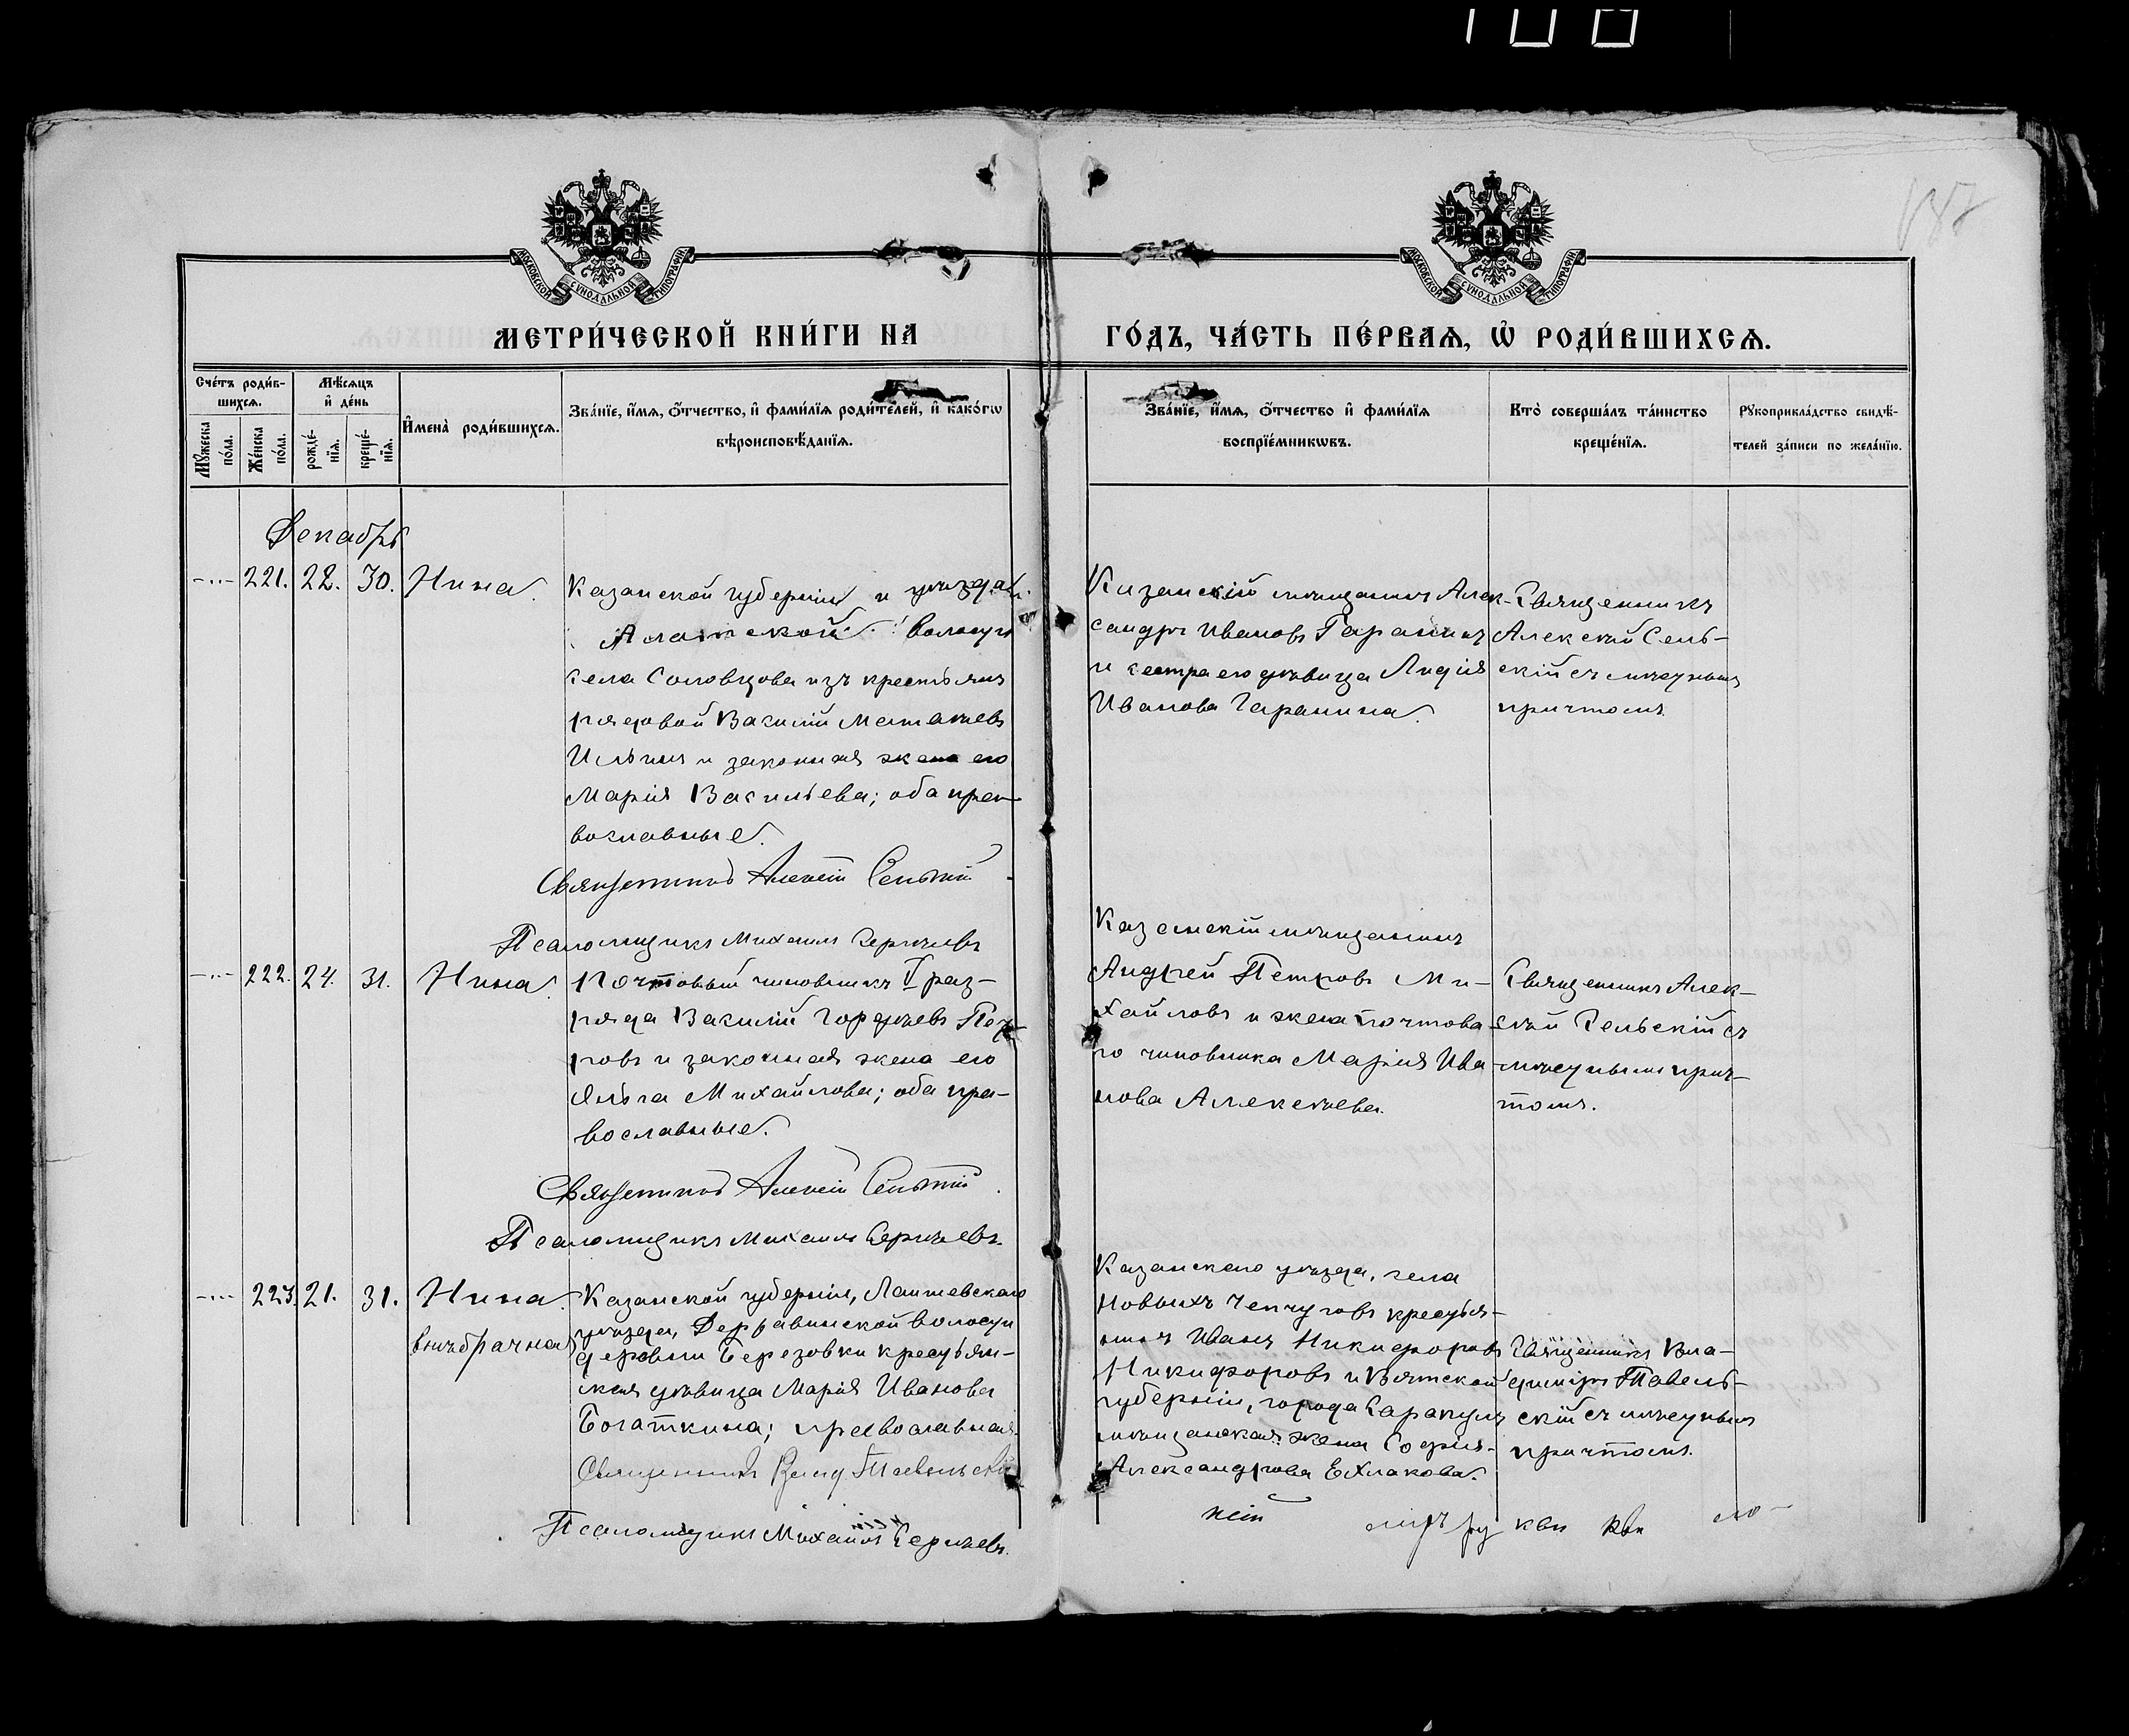 МОСКОВСКОЙ СУНОДАЛЬНОЙ ТИПОГРАФІИ
МОСКОВСКОЙ СУНОДАЛЬНОЙ ТИПОГРАФІИ
МЕТРИ́ЧЕСКОЙ КНИ́ГИ НА
ГО́ДЪ, ЧА́СТЬ ПЕ́РВАѦ, Ѽ РОДИ́ВШИХСѦ.
Сче́тъ роди́в-
шихсѧ.
Мѣ́сѧцъ
и҆ де́нь
Мꙋ́жеска
по́ла.
Же́нска
по́ла.
рожде́-
нїѧ.
креще́-
нїѧ.
И҆мена̀ роди́вшихсѧ.
Зва́нїе, и҆́мѧ, ѻ҆́тчество, и҆ фами́лїѧ роди́телей, и҆ како́гѡ
вѣроисповѣ́данїѧ.
Зва́нїе, и҆́мѧ, ѻ҆́тчество и҆ фами́лїѧ
воспрїе́мникѡвъ.
Кто̀ соверша́лъ та́инство
креще́нїѧ.
Рꙋкоприкла́дство свидѣ́-
телей за́писи по жела́нїю.
Декабрь
221. 22. 30. Нина.
Казанской губерніи и уѣзда
Алатской волости
села Соловцова изъ крестьянъ
рядовой Василій Матвѣевъ
Ильинъ и законная жена его
Марія Васильева; оба пра-
вославные.
Священникъ Алексій Сельскій
Псаломщикъ Михаилъ Сергѣевъ
Казанскій мѣщанинъ Алек-
сандръ Ивановъ Гаранинъ
и сестра его дѣвица Лидія
Иванова Гаранина.
Священникъ
Алексѣй Сель-
скій съ мѣстнымъ
причтомъ.
222. 24. 31. Нина.
Почтовый чиновникъ V раз-
ряда Василій Гордѣевъ Пет-
ровъ и законная жена его
Ольга Михайлова; оба пра-
вославные.
Священникъ Алексій Сельскій
Псаломщикъ Михаилъ Сергѣевъ.
Казанскій мѣщанинъ
Андрей Петровъ Ми-
хайловъ и жена почтова-
го чиновника Марія Ива-
нова Алексѣева.
Священникъ Алек-
сѣй Сельскій съ
мѣстнымъ прич-
томъ.
223. 21. 31. Нина.
внѣбрачная
Казанской губерніи, Лаишевскаго
уѣзда, Державинской волости
деревни Березовки крестьян-
ская дѣвица Марія Иванова
Богаткина; православная.
Священникъ Влад. Павельскій
Псаломщикъ Михаилъ Сергѣевъ.
Казанскаго уѣзда, села
Новыхъ Чепчуговъ крестья-
нинъ Иванъ Никифоровъ
Никифоровъ и Вятской
губерніи, города Сарапула
мѣщанская жена Софія
Александрова Ехлакова.
Священникъ Вла-
диміръ Павель-
скій съ мѣстнымъ
причтомъ.